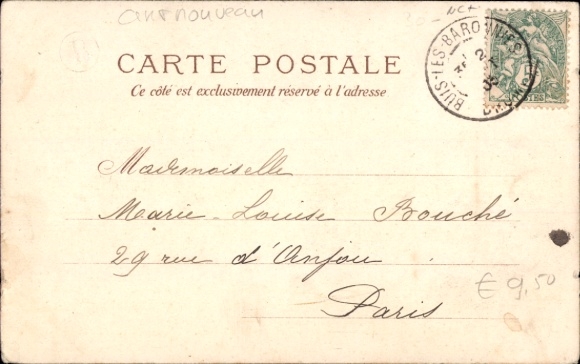 art nouveau
CARTE POSTALE
Ce côté est exclusivement réservé à l'adresse
BUIS-LES-BARONNIES
Mademoiselle
Marie-Louise Bouché
29 rue d'Anjou
Paris
€ 9,50